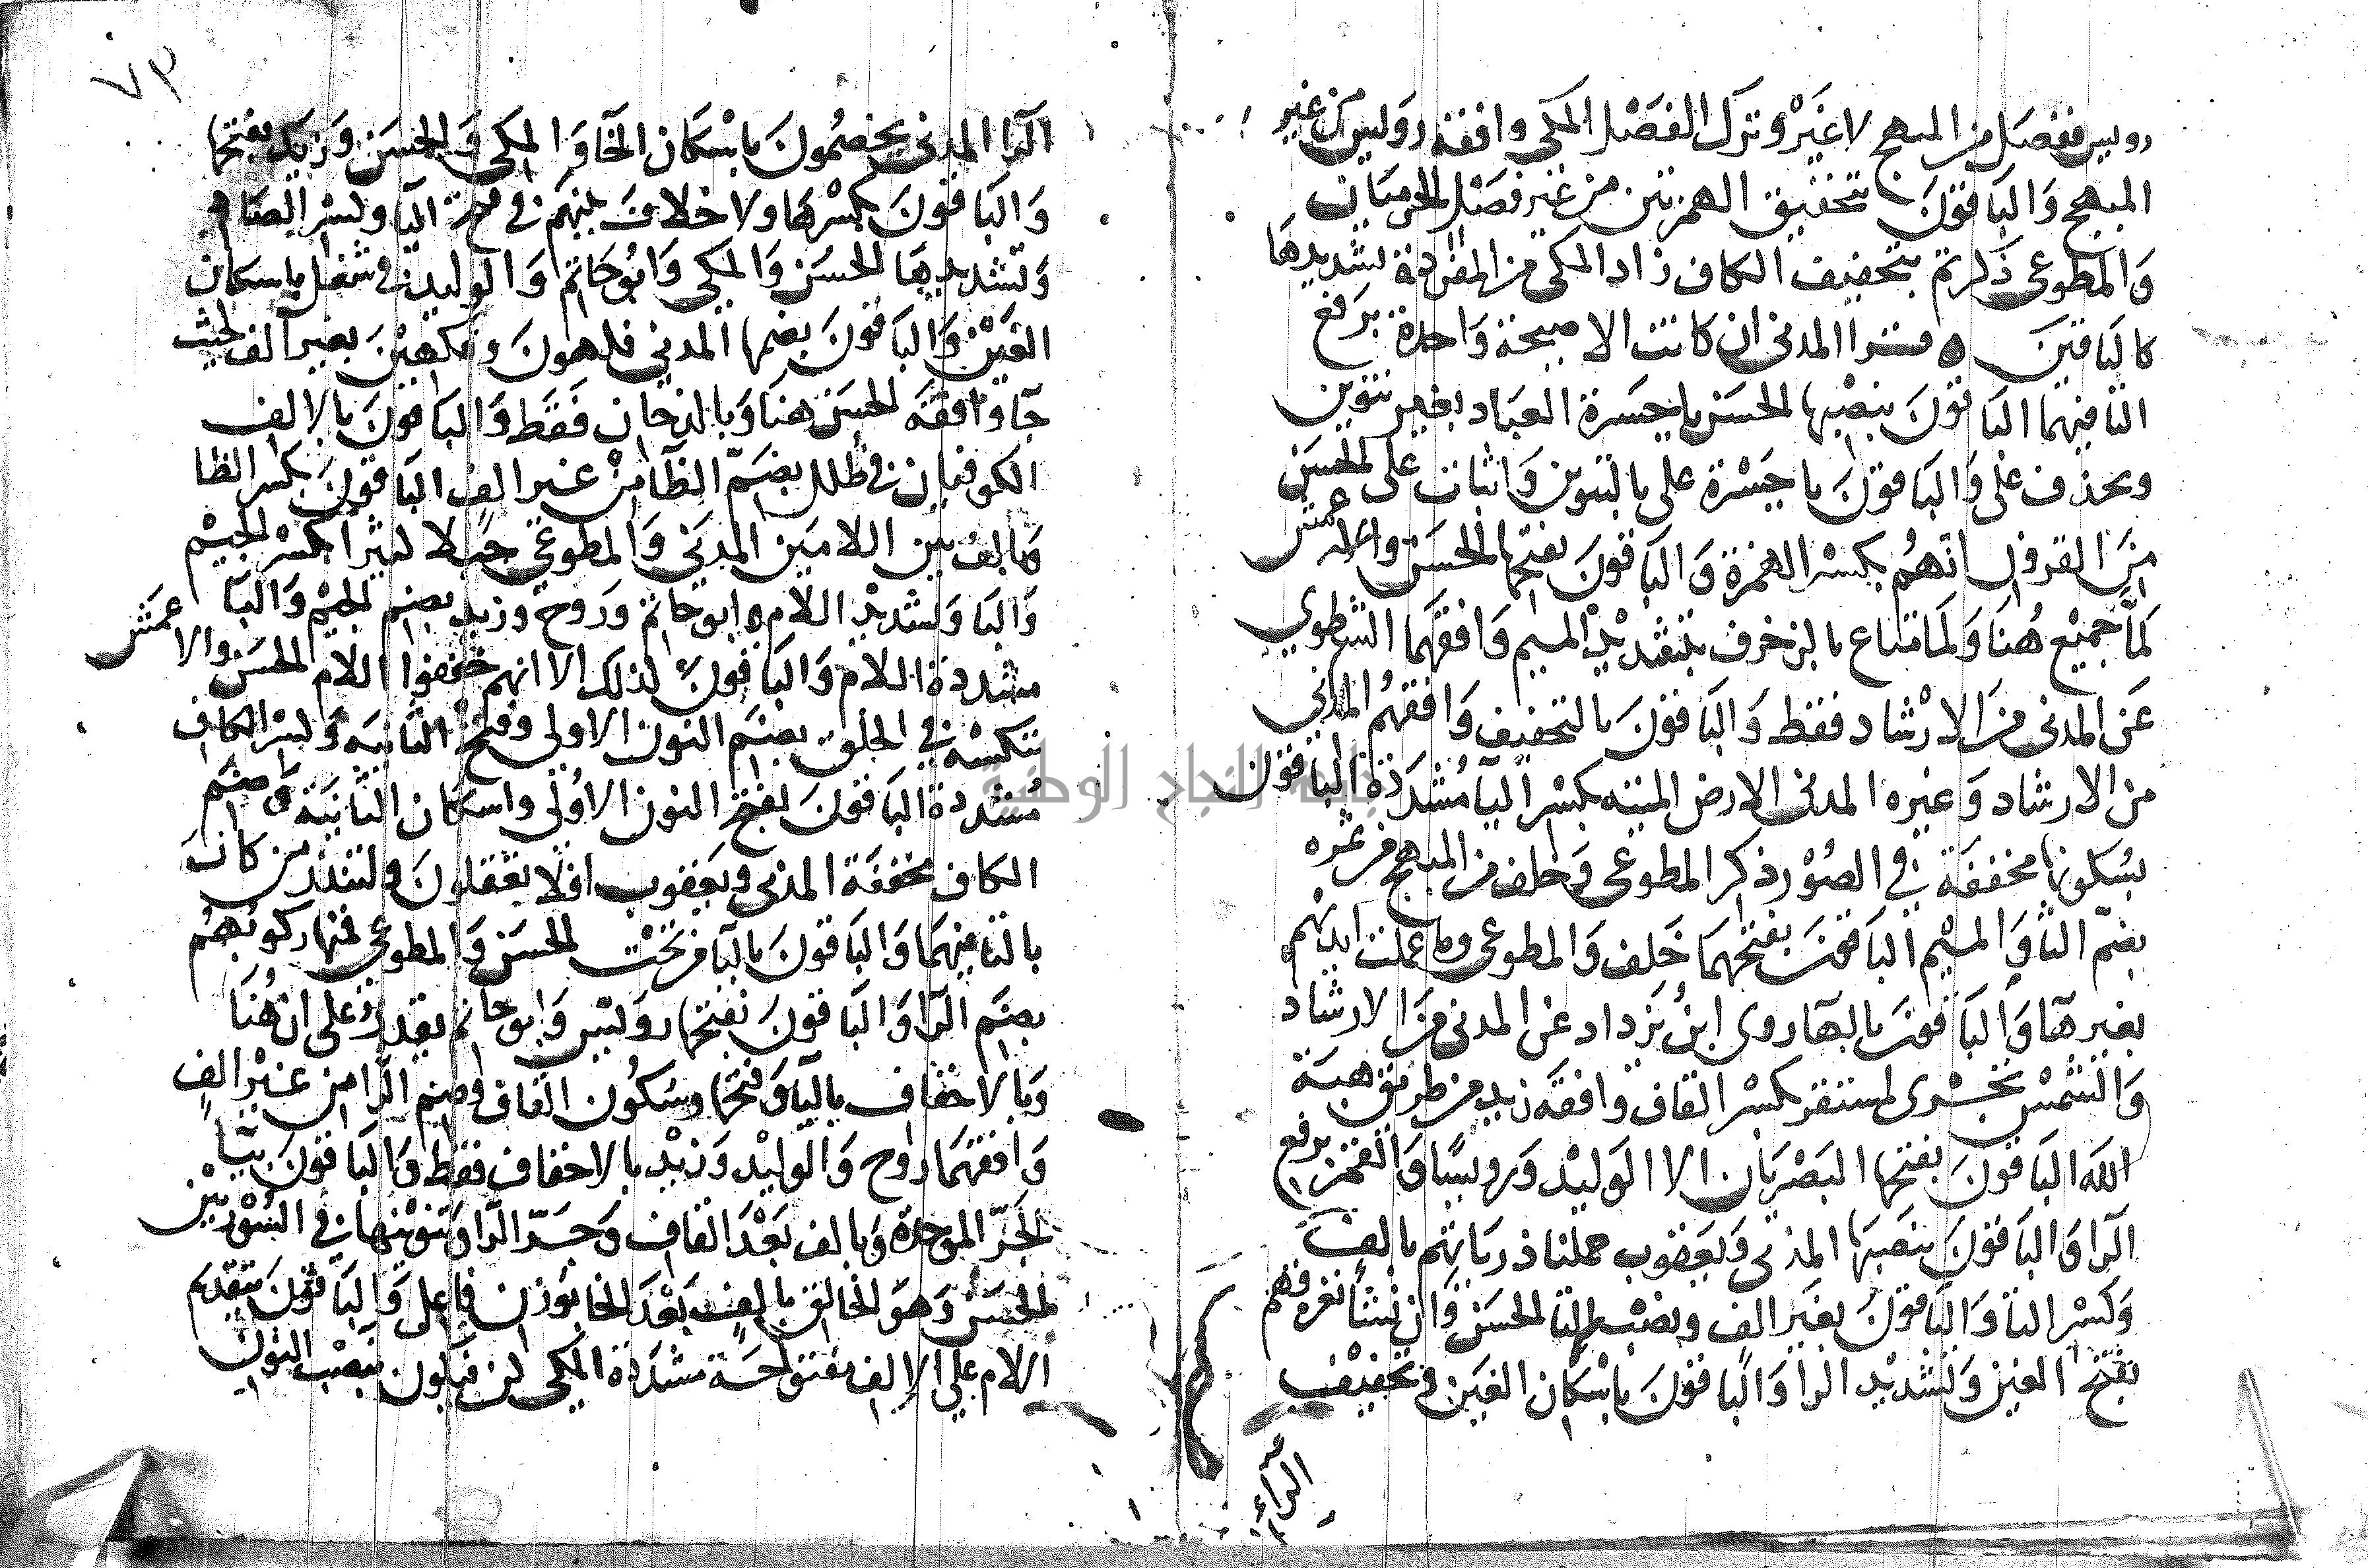 رويس ففصل من المبهج لا غير وترك الفصل المكي وافقه رويس من غير
المبهج والباقون بتحقيق الهمزتين من غير فصل الحرميان
والمطوعي ذكرتم بتخفيف الكاف زاد المكي من المفردة تشديدها
كالباقين ه قرا المدني ان كانت الا صيحة واحدة برفع
التا فيهما الباقون بنصبها الحسن يا حسرة العباد بغير تنوين
وبحذف على والباقون يا حسرة على بالتنوين واثبات على الحسن
من القرون انهم بكسر الهمزة والباقون بفتحها الحسن والاعمش
لمّا جميع هنا ولما متاع بالزخرف بتشديد الميم وافقهما الشطوي
عن المدني من الارشاد فقط والباقون بالتخفيف وافقهم المدني
من الارشاد وغيره المدني الارض الميتة بكسر اليا مشددة الباقون
بسكونها مخففة في الصور ذكر المطوعي وخلف من المبهج من ثمره
بضم الثا والميم الباقون بفتحهما خلف والمطوعي وما عملت ايديهم
بغير ها والباقون بالها روى ابن يزداد عن المدني من الارشاد
والشمس تجري لمستقر بكسر القاف وافقه زيد من طريق هبة
الله الباقون بفتحها البصريان الا الوليد ورويسا والقمر برفع
الرا والباقون بنصبها المدني ويعقوب حملنا ذرياتهم بالف
وكسر التا والباقون بغير الف ونصب التا الحسن وان نشا نغرقهم
بفتح الغين وتشديد الرا والباقون باسكان الغين في تخفيف
الرا
٧٣
الرا المدني يخصمون باسكان الخا والمكي والحسن وزيد بفتحها
والباقون بكسرها ولا خلاف بينهم في فتح اليا وكسر الصاد
وتشديدها الحسن والمكي وابو حاتم والوليد في شغل باسكان
الغين والباقون بضمها المدني فكهون وفكهين بغير الف حيث
جا وافقه الحسن هنا وبالدخان فقط والباقون بالالف
الكوفيان في ظلل بضم الظا من غير الف الباقون بكسر الظا
وبالف بين اللامين المدني والمطوعي جبلا كثيرا بكسر الجيم
والبا وتشديد اللام ه ابو حاتم وروح وزيد بضم الجيم والبا
مشددة اللام والباقون كذلك الا انهم خففوا اللام الحسن والاعمش
ننكسه في الخلق بضم النون الاولى وفتح الثانية وكسر الكاف
مشددة الباقون بفتح النون الاولى واسكان الثانية وضم
الكاف مخففة المدني ويعقوب افلا تعقلون ولتنذر من كان
بالتا فيهما والباقون باليا من تحت الحسن والمطوعي فمنها ركوبهم
بضم الرا والباقون بفتحها رويس وابو حاتم يقدر على ان هنا
وبالاحقاف باليا وفتحها وسكون القاف وضم الرا من غير الف
وافقهما روح والوليد وزيد بالاحقاف فقط والباقون ببا
الجر الموحدة وبالف بعد القاف وجر الرا وتنوينها في السورتين
الحسن وهو الخالق بالف بعد الخا بوزن فاعل والباقون بتقديم
اللام على الالف بفتوحة مشددة المكي كن فيكون بنصب النون